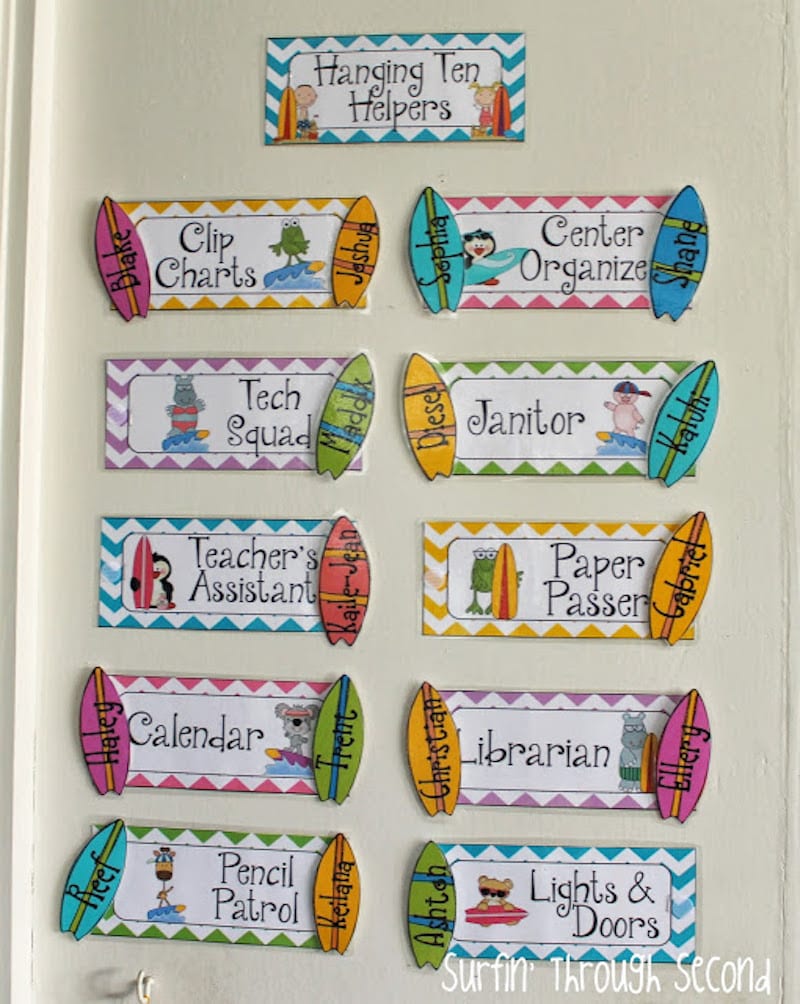 Hanging Ten
Helpers
Blake
Clip
Charts
Joshua
Sophia
Center
Organize
Shane
Tech
Squad
Maddix
Diesel
Janitor
Kaluhi
Teacher's
Assistant
Kaile-Jean
Paper
Passer
Gabriel
Haley
Calendar
Trent
Christian
Librarian
Ellery
Reef
Pencil
Patrol
Keilana
Ashton
Lights &
Doors
Surfin' Through Second